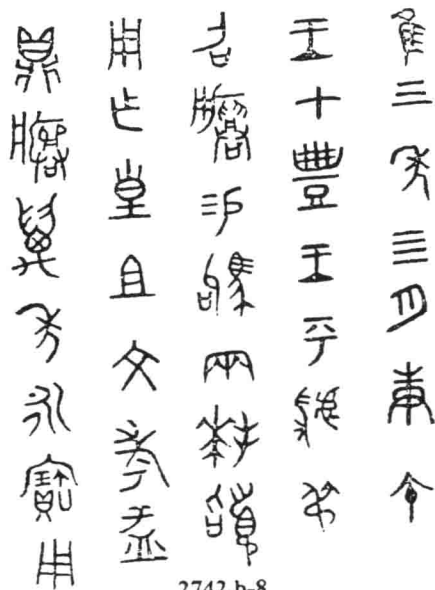 隹三年四月庚午
王才豐王乎虢叔
召𤼈易駒兩拜稽
用乍皇且文考盂
鼎𤼈萬年永寶用
2742 b-8